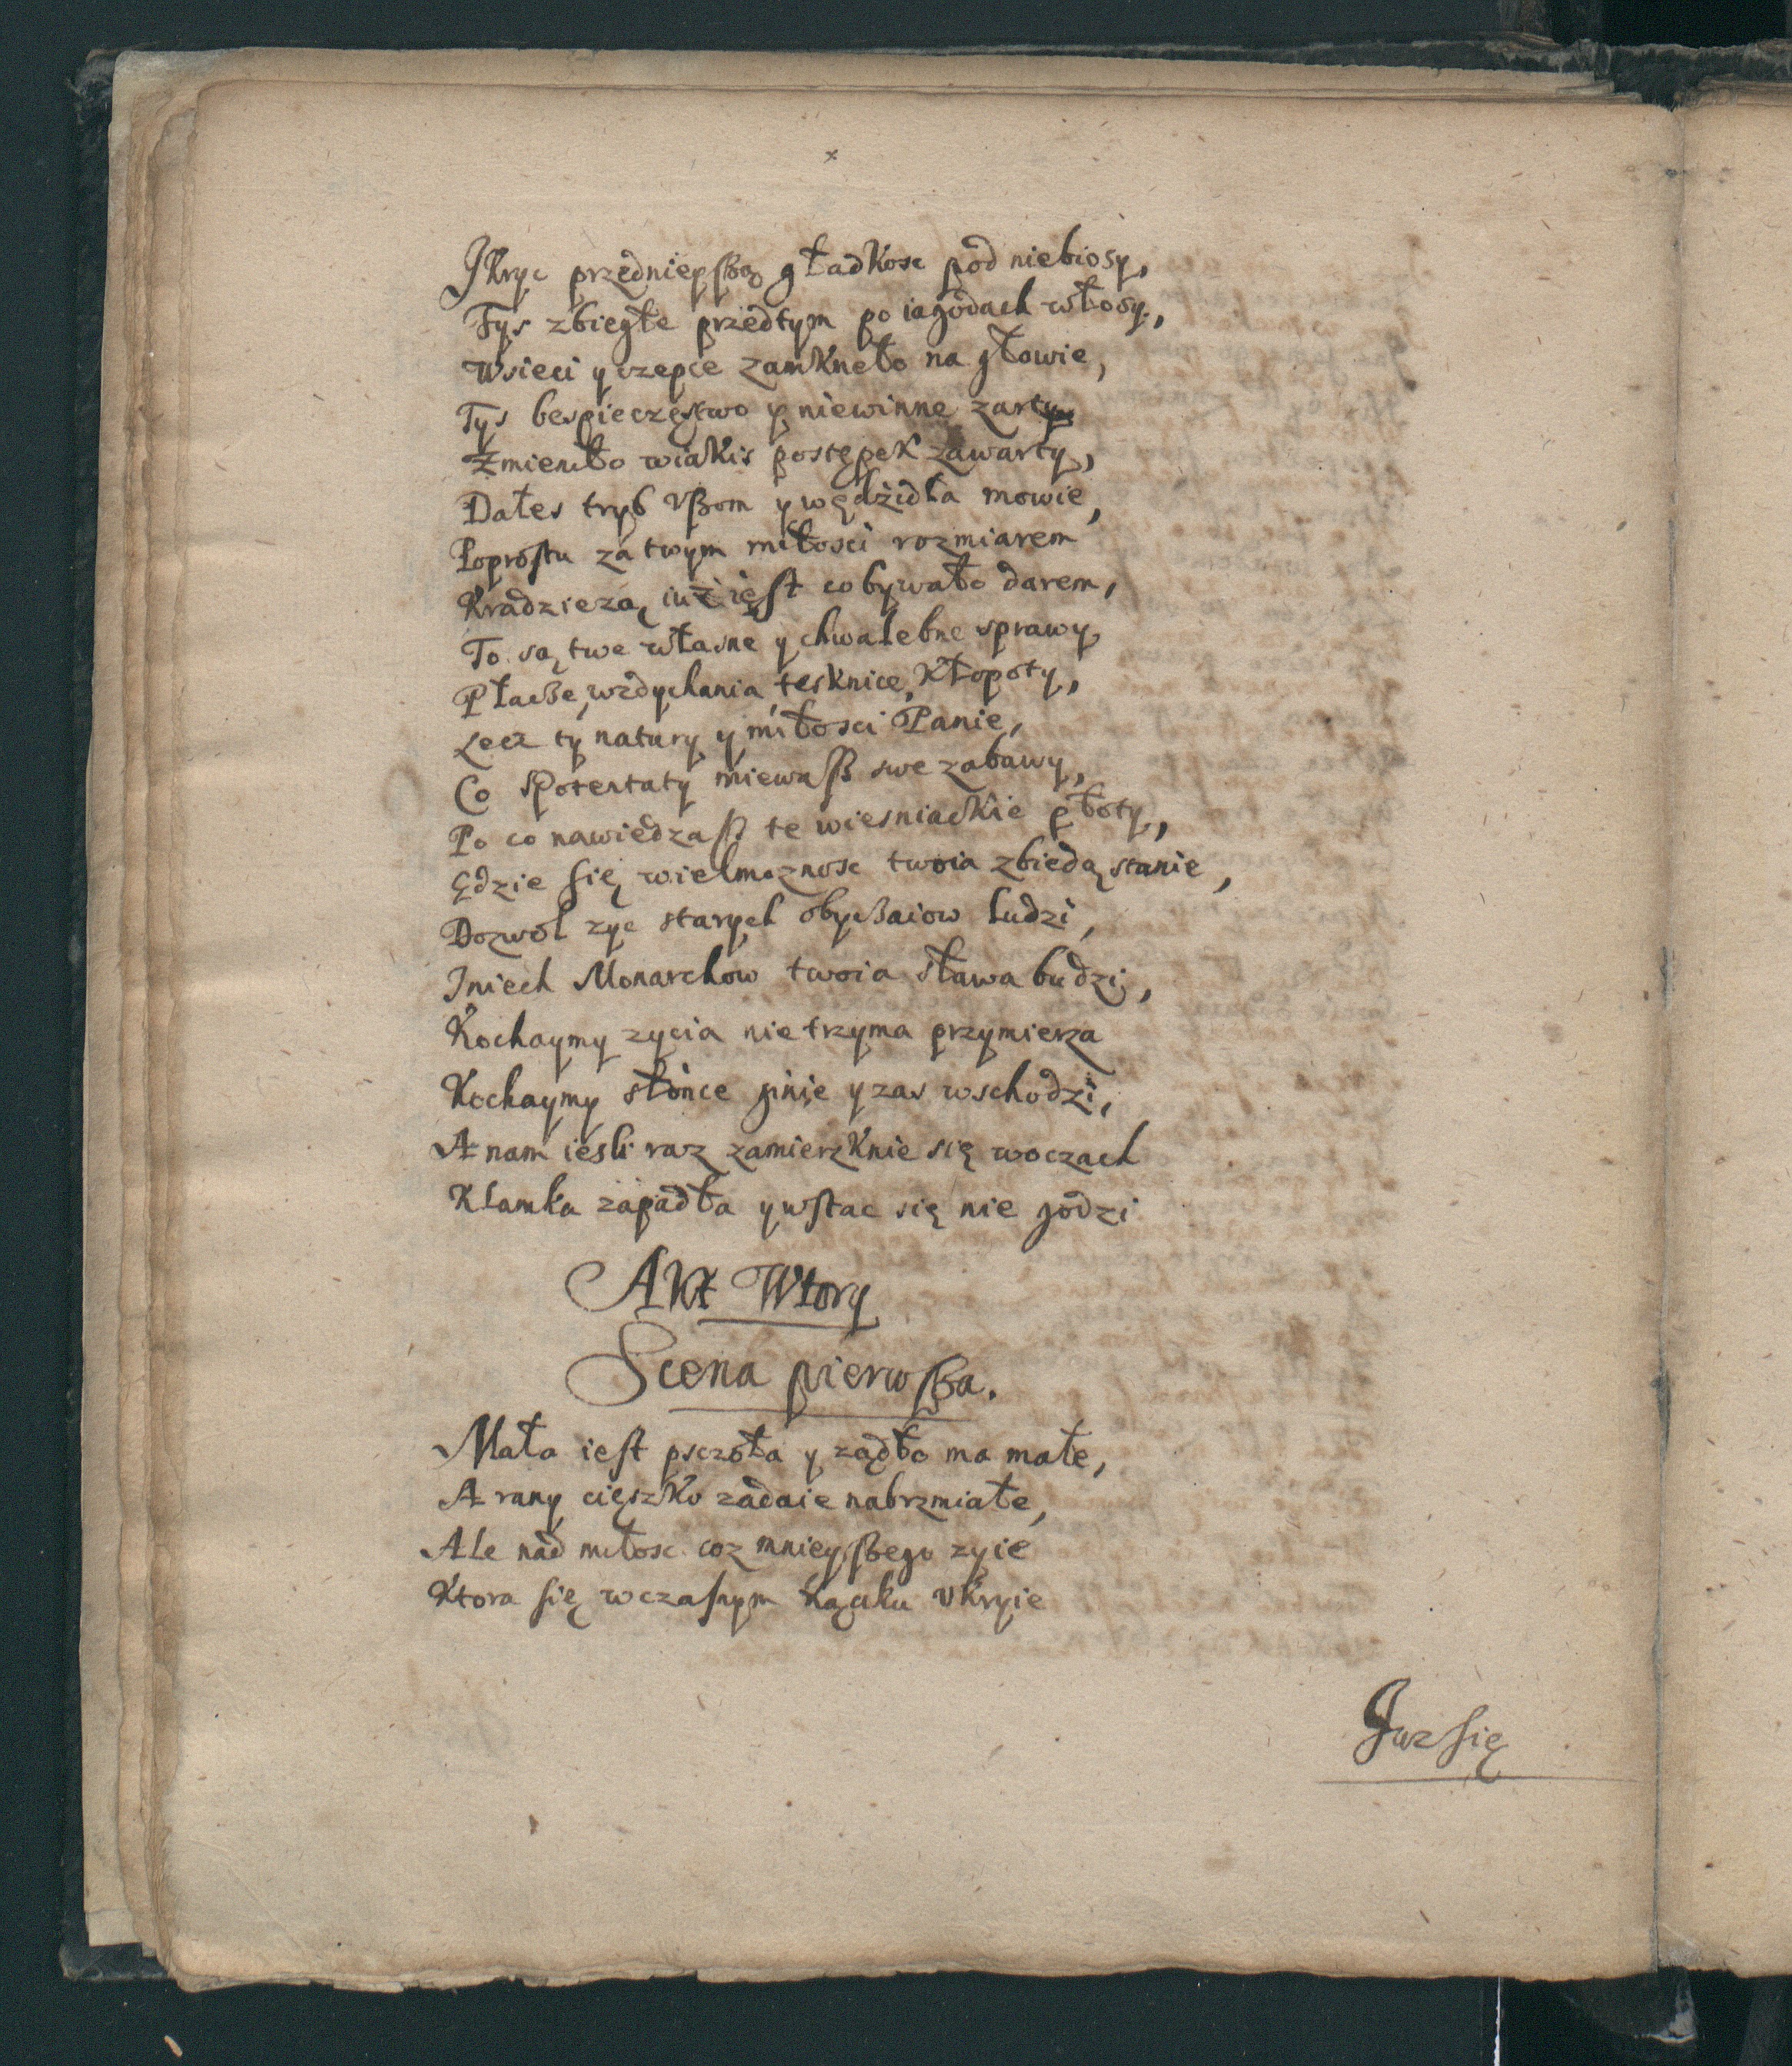 Jkryc przednieyszą gładkosc pod niebiosy,
Tys zbiegłe przedtym po iagodach włosy,
Wsieci y czepce zamkneło na głowie,
Tys bespieczęstwo y niewinne zarty
Zmieniło wiakis postępek zawarty,
Dałes tryb vßom y wędzidła mowie,
Poprostu za twym miłosci rozmiarem
Kradziezą iuż iest co bywało darem,
To są twe własne y chwalebne sprawy,
Płacße, wzdychania, tesknice, kłopoty,
Lecz ty natury y miłosci Panie,
Co sPotentaty miewaß swe zabawy,
Po co nawiedzaß te wiesniackie płoty,
Gdzie się wielmoznosc twoia zbiedą stanie,
Dozwol zyc starych obycßaiow ludzi,
Jniech Monarchow twoia sława budzi,
Kochaymy zycia nie trzyma przymierza
Kochaymy słonce ginie y zas wschodzi,
A nam iesli raz zamierzknie się woczach
Klamka zapadła y wstac się nie godzi
Akt Wtory
Scena pierwßa.
Mała iest psczoła y ządło ma małe,
A rany cięszko zadaie nabrzmiałe,
Ale nad miłosc coz mnieyßego zyie
Ktora się wczasnym kącku vkryie
Juz się